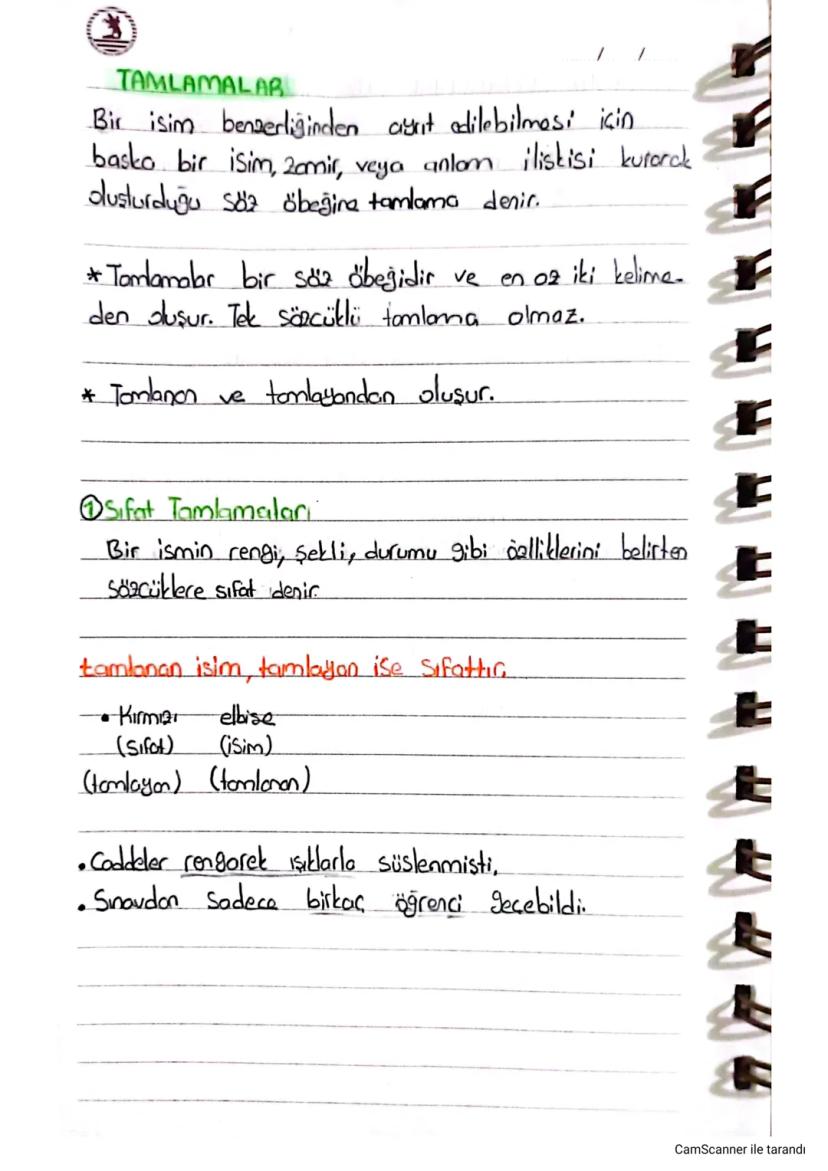 / /
TAMLAMALAR
Bir isim benzerliğinden ayrıt edilebilmesi için
başka bir isim, zamir, veya anlam ilişkisi kurarak
oluşturduğu söz öbeğine tamlama denir.
* Tamlamalar bir söz öbeğidir ve en az iki kelime-
den oluşur. Tek sözcüklü tamlama olmaz.
* Tamlanan ve tamlayandan oluşur.
① Sıfat Tamlamaları
Bir ismin rengi, şekli, durumu gibi özelliklerini belirten
sözcüklere sıfat denir.
tamlanan isim, tamlayan ise sıfattır.
• Kırmızı elbise
(sıfat) (isim)
(tamlayan) (tamlanan)
• Caddeler rengarek ışıklarla süslenmişti.
• Sınavdan sadece birkaç öğrenci geçebildi.
CamScanner ile tarandı